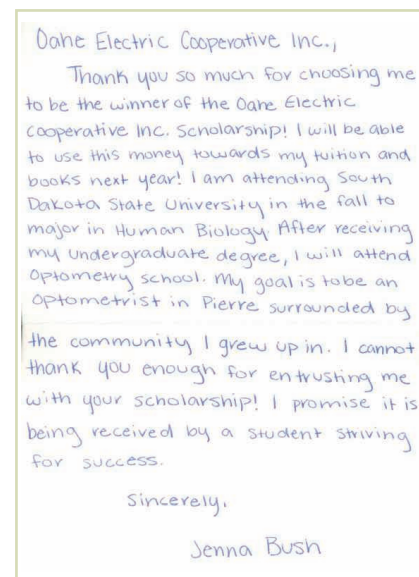 Oahe Electric Cooperative Inc.,
Thank you so much for choosing me
to be the winner of the Oahe Electric
cooperative Inc. Scholarship! I will be able
to use this money towards my tuition and
books next year! I am attending South
Dakota State University in the fall to
major in Human Biology. After receiving
my undergraduate degree, I will attend
Optometry school. My goal is to be an
Optometrist in Pierre surrounded by
the community I grew up in. I cannot
thank you enough for entrusting me
with your scholarship! I promise it is
being received by a student striving
for success.
Sincerely,
Jenna Bush